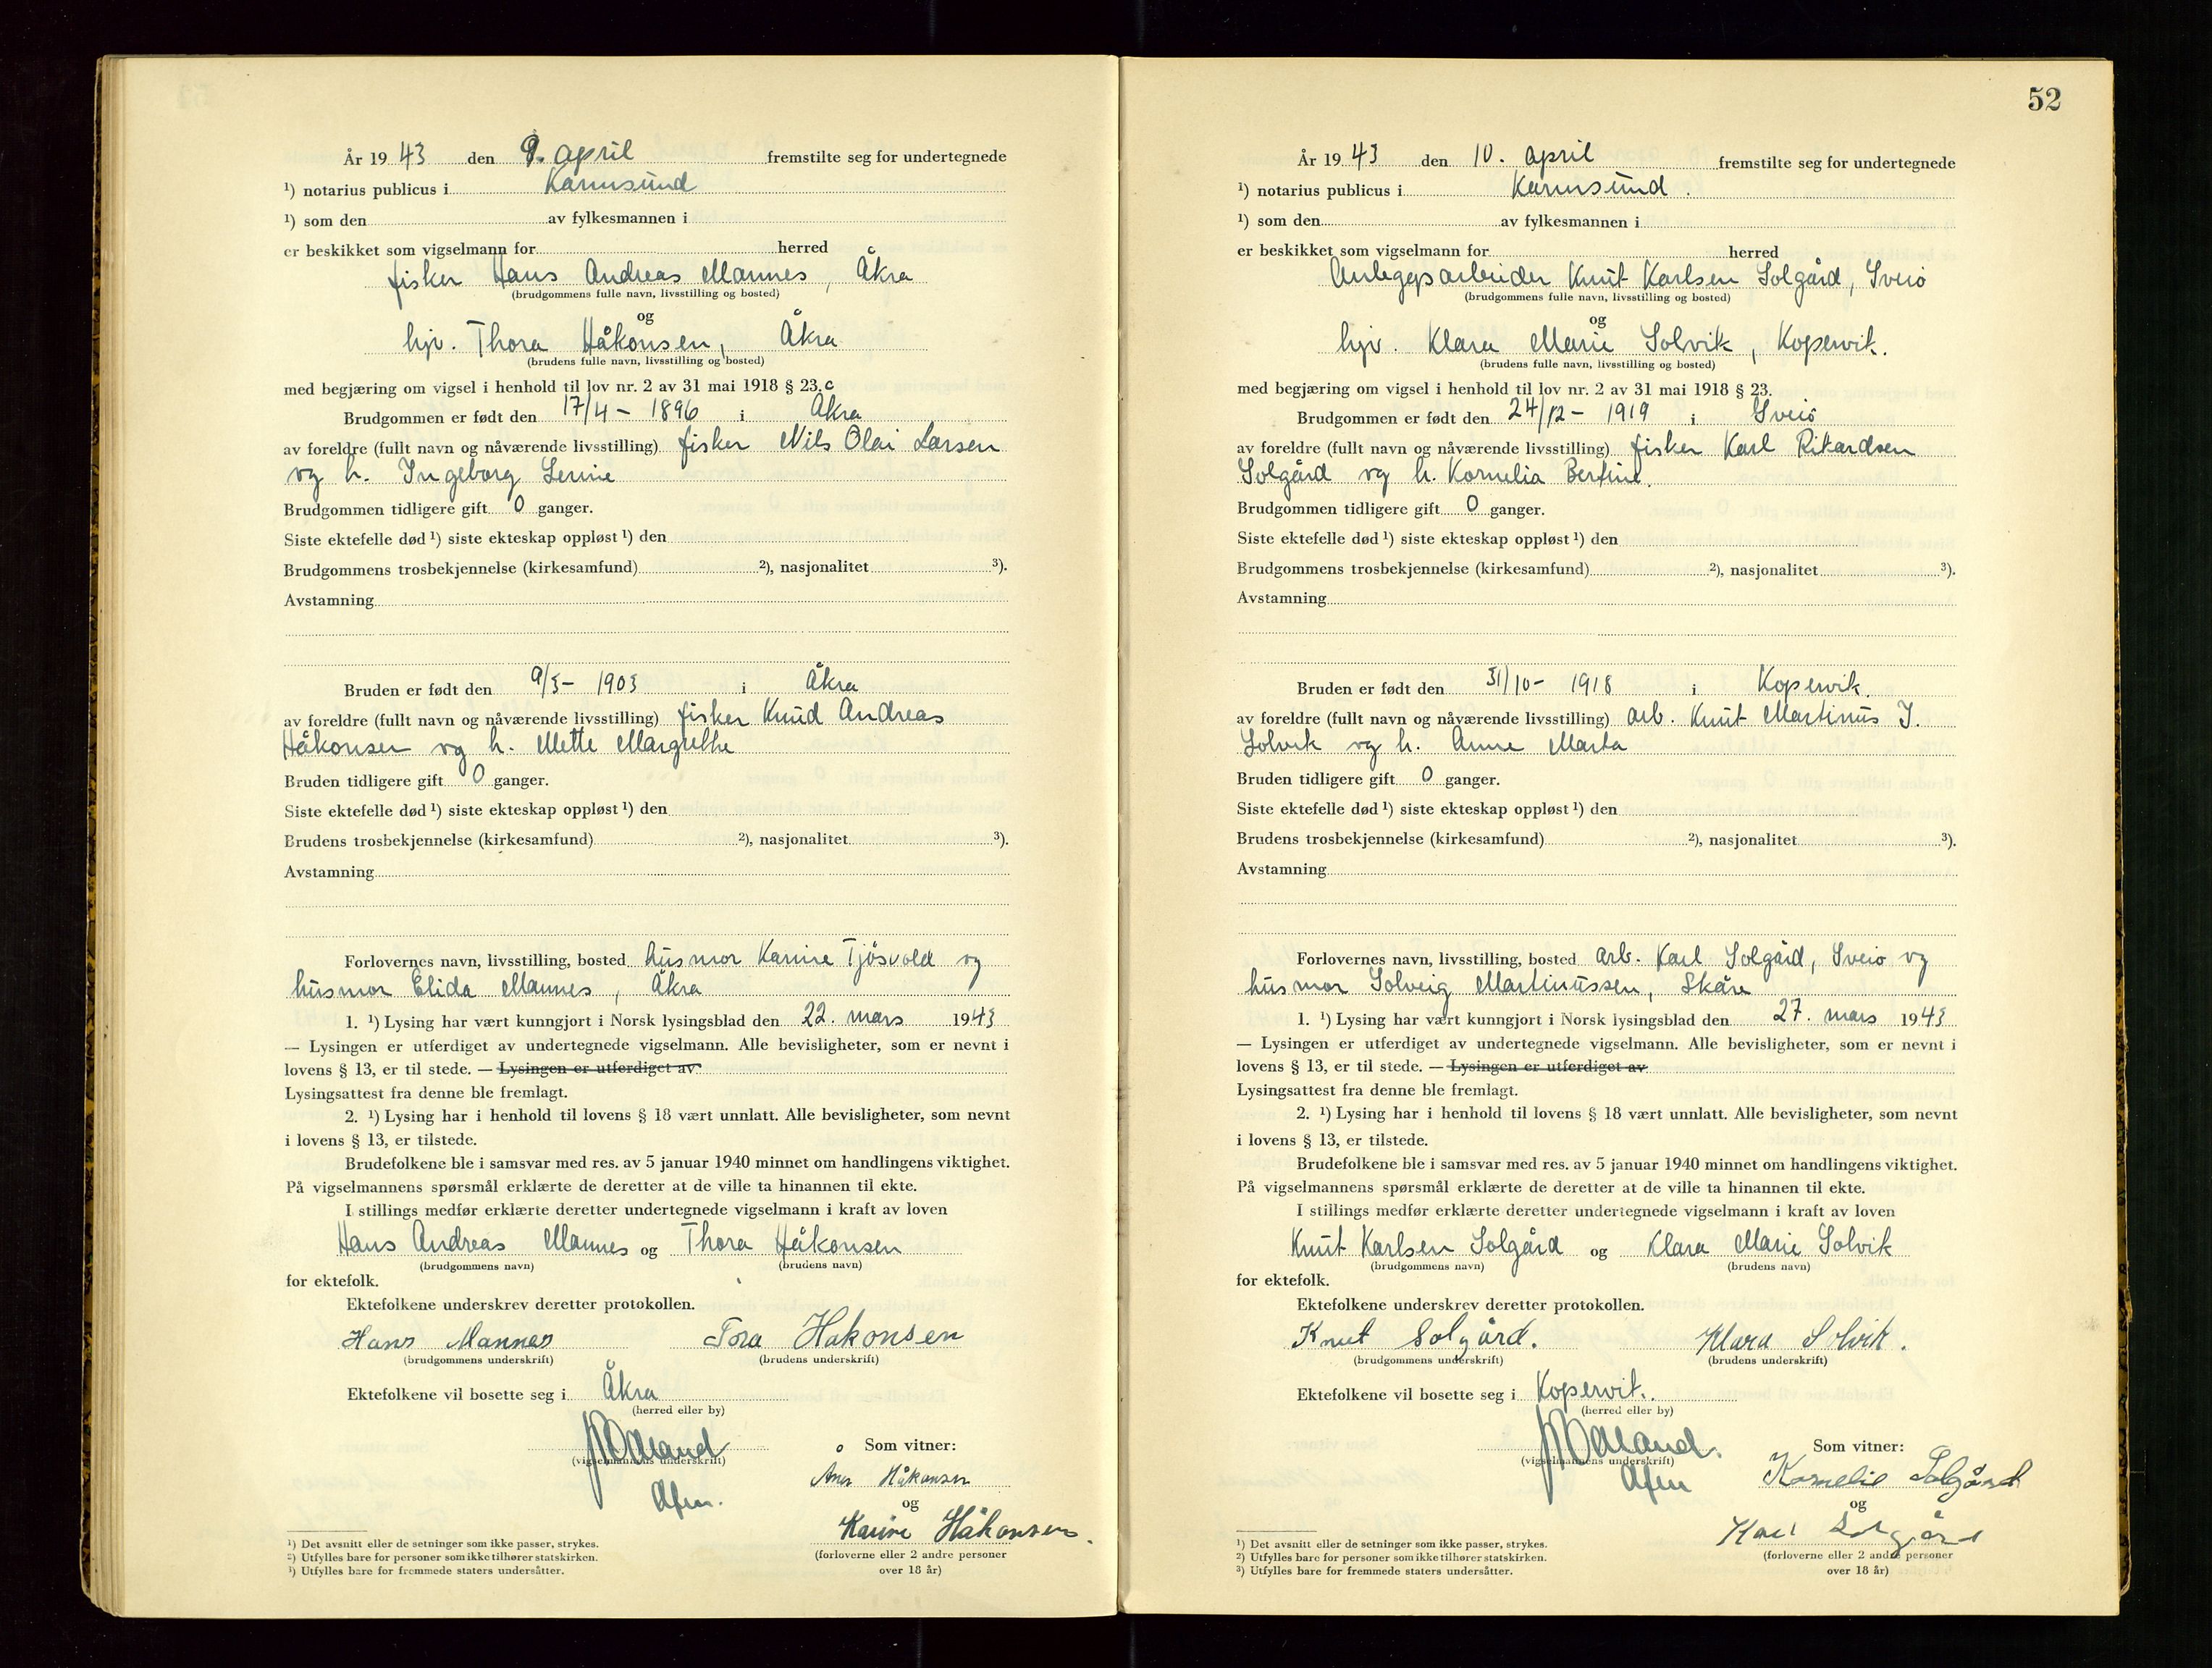 År 19 43 den 9. april fremstilte seg for undertegnede
¹) notarius publicus i Karmsund
¹) som den av fylkesmannen i
er beskikket som vigselmann for herred
fisker Hans Andreas Mannes, Åkra
(brudgommens fulle navn, livsstilling og bosted)
og
hjv. Thora Håkonsen, Åkra
(brudens fulle navn, livsstilling og bosted)
med begjæring om vigsel i henhold til lov nr. 2 av 31 mai 1918 § 23.
Brudgommen er født den 17/4 - 1896 i Åkra
av foreldre (fullt navn og nåværende livsstilling) fisker Nils Olai Larsen
og h. Ingeborg Serine
Brudgommen tidligere gift 0 ganger.
Siste ektefelle død ¹) siste ekteskap oppløst ¹) den
Brudgommens trosbekjennelse (kirkesamfund) ²), nasjonalitet ³).
Avstamning
Bruden er født den 9/3 - 1903 i Åkra
av foreldre (fullt navn og nåværende livsstilling) fisker Knud Andreas
Håkonsen og h. Mette Margrethe
Bruden tidligere gift 0 ganger.
Siste ektefelle død ¹) siste ekteskap oppløst ¹) den
Brudens trosbekjennelse (kirkesamfund) ²), nasjonalitet ³).
Avstamning
Forlovernes navn, livsstilling, bosted husmor Karine Tjösvold og
husmor Elida Mannes, Åkra
1. ¹) Lysing har vært kunngjort i Norsk lysingsblad den 22. mars 1943
— Lysingen er utferdiget av undertegnede vigselmann. Alle bevisligheter, som er nevnt i
lovens § 13, er til stede. — Lysingen er utferdiget av
Lysingsattest fra denne ble fremlagt.
2. ¹) Lysing har i henhold til lovens § 18 vært unnlatt. Alle bevisligheter, som nevnt
i lovens § 13, er tilstede.
Brudefolkene ble i samsvar med res. av 5 januar 1940 minnet om handlingens viktighet.
På vigselmannens spørsmål erklærte de deretter at de ville ta hinannen til ekte.
I stillings medfør erklærte deretter undertegnede vigselmann i kraft av loven
Hans Andreas Mannes og Thora Håkonsen
(brudgommens navn) (brudens navn)
for ektefolk.
Ektefolkene underskrev deretter protokollen.
Hans Mannes Tora Håkonsen
(brudgommens underskrift) (brudens underskrift)
Ektefolkene vil bosette seg i Åkra
(herred eller by)
Som vitner:
(vigselmannens underskrift)
Håkonsen
og
Karine Håkonsen.
¹) Det avsnitt eller de setninger som ikke passer, strykes.
²) Utfylles bare for personer som ikke tilhører statskirken.
³) Utfylles bare for fremmede staters undersåtter.
(forloverne eller 2 andre personer
over 18 år)
52
År 19 43 den 10. april fremstilte seg for undertegnede
¹) notarius publicus i Karmsund.
¹) som den av fylkesmannen i
er beskikket som vigselmann for herred
Anleggsarbeider Knut Karlsen Solgård, Sveio
(brudgommens fulle navn, livsstilling og bosted)
og
hjv. Klara Marie Solvik, Kopervik.
(brudens fulle navn, livsstilling og bosted)
med begjæring om vigsel i henhold til lov nr. 2 av 31 mai 1918 § 23.
Brudgommen er født den 24/12 - 1919 i Sveio
av foreldre (fullt navn og nåværende livsstilling) fisker Karl Rikardsen
Solgård og h. Kornelia Bertine.
Brudgommen tidligere gift 0 ganger.
Siste ektefelle død ¹) siste ekteskap oppløst ¹) den
Brudgommens trosbekjennelse (kirkesamfund) ²), nasjonalitet ³).
Avstamning
Bruden er født den 31/10 - 1918 i Kopervik.
av foreldre (fullt navn og nåværende livsstilling) arb. Knut Martinus J.
Solvik og h. Anne Marta
Bruden tidligere gift 0 ganger.
Siste ektefelle død ¹) siste ekteskap oppløst ¹) den
Brudens trosbekjennelse (kirkesamfund) ²), nasjonalitet ³).
Avstamning
Forlovernes navn, livsstilling, bosted arb. Karl Solgård, Sveio og
husmor Solveig Martinussen, Skåre
1. ¹) Lysing har vært kunngjort i Norsk lysingsblad den 27. mars 1943
— Lysingen er utferdiget av undertegnede vigselmann. Alle bevisligheter, som er nevnt i
lovens § 13, er til stede. — Lysingen er utferdiget av
Lysingsattest fra denne ble fremlagt.
2. ¹) Lysing har i henhold til lovens § 18 vært unnlatt. Alle bevisligheter, som nevnt
i lovens § 13, er tilstede.
Brudefolkene ble i samsvar med res. av 5 januar 1940 minnet om handlingens viktighet.
På vigselmannens spørsmål erklærte de deretter at de ville ta hinannen til ekte.
I stillings medfør erklærte deretter undertegnede vigselmann i kraft av loven
Knut Karlsen Solgård og Klara Marie Solvik
(brudgommens navn) (brudens navn)
for ektefolk.
Ektefolkene underskrev deretter protokollen.
Knut Solgård. Klara Solvik.
(brudgommens underskrift) (brudens underskrift)
Ektefolkene vil bosette seg i Kopervik.
(herred eller by)
Som vitner:
(vigselmannens underskrift)
Kornelie Solgård
og
Karl Solgård
¹) Det avsnitt eller de setninger som ikke passer, strykes.
²) Utfylles bare for personer som ikke tilhører statskirken.
³) Utfylles bare for fremmede staters undersåtter.
(forloverne eller 2 andre personer
over 18 år)